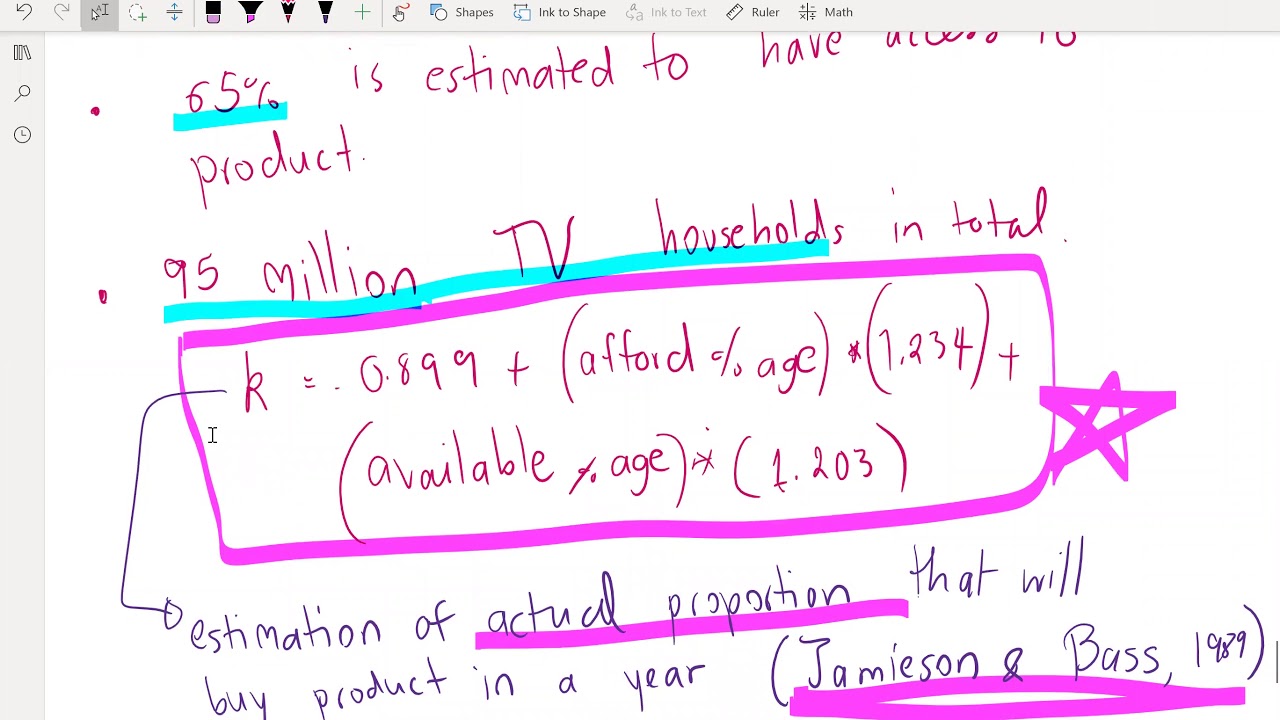 Shapes Ink to Shape Ink to Text Ruler Math
65% is estimated to have access to
product.
95 million TV households in total.
k = -0.899 + (afford % age) * (1.234) +
(available % age) * (1.203)
estimation of actual proportion that will
buy product in a year (Jamieson & Bass, 1989)